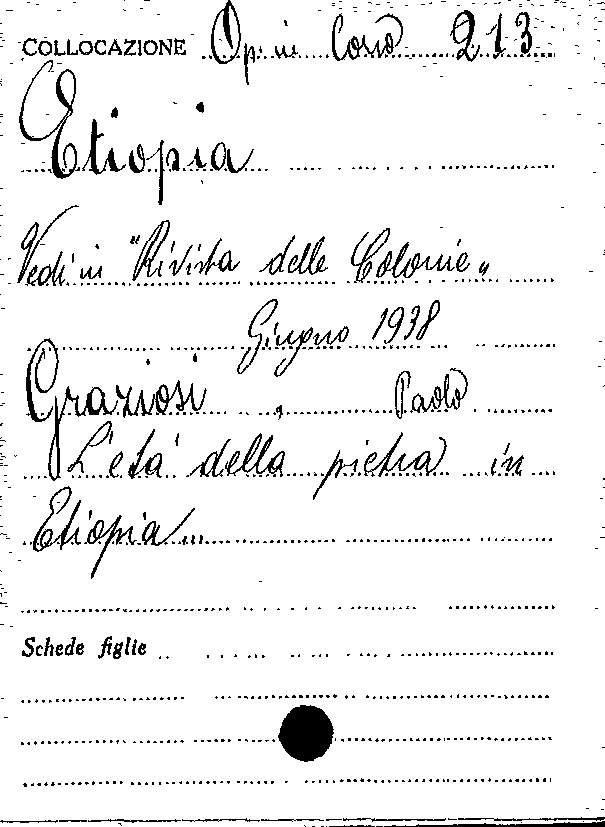 COLLOCAZIONE Op. in Corso 213
Etiopia
Vedi in "Rivista delle Colonie"
Giugno 1938
Graziosi, Paolo
L'età della pietra in
Etiopia
Schede figlie